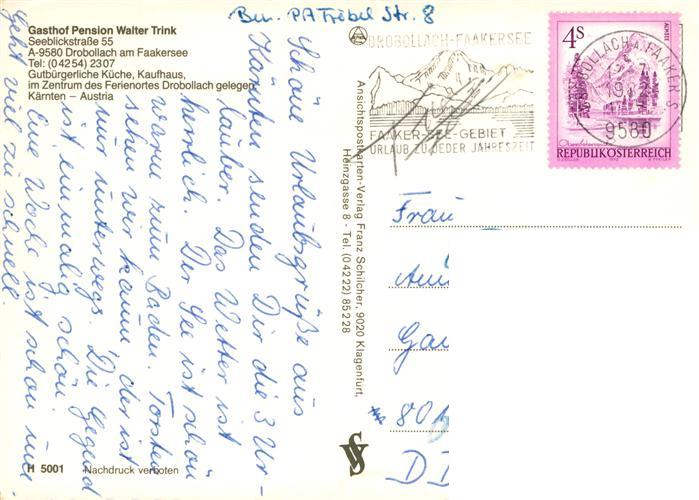 Bei PA Tröbel Str. 8
Gasthof Pension Walter Trink
Seeblickstraße 55
A-9580 Drobollach am Faakersee
Tel: (04254) 2307
Gutbürgerliche Küche, Kaufhaus,
im Zentrum des Ferienortes Drobollach gelegen
Kärnten – Austria
Schöne Urlaubsgrüße aus
Kärnten senden Dir die 3 Ur-
lauber. Das Wetter ist
herrlich. Der See ist schön
warm zum Baden. Torsten
sehn wir kaum, der ist
nur unterwegs. Die Gegend
ist einmalig schön.
Eine Woche ist schon um.
Geht viel zu schnell.
H 5001 Nachdruck verboten
Ansichtspostkarten-Verlag Franz Schilcher, 9020 Klagenfurt,
Heinzgasse 8 - Tel. (04222) 85228
DROBOLLACH-FAAKERSEE
FAAKER-SEE-GEBIET
URLAUB ZU JEDER JAHRESZEIT
DROBOLLACH A. FAAKER S.
9580
4S
ALMSEE
REPUBLIK ÖSTERREICH
Frau